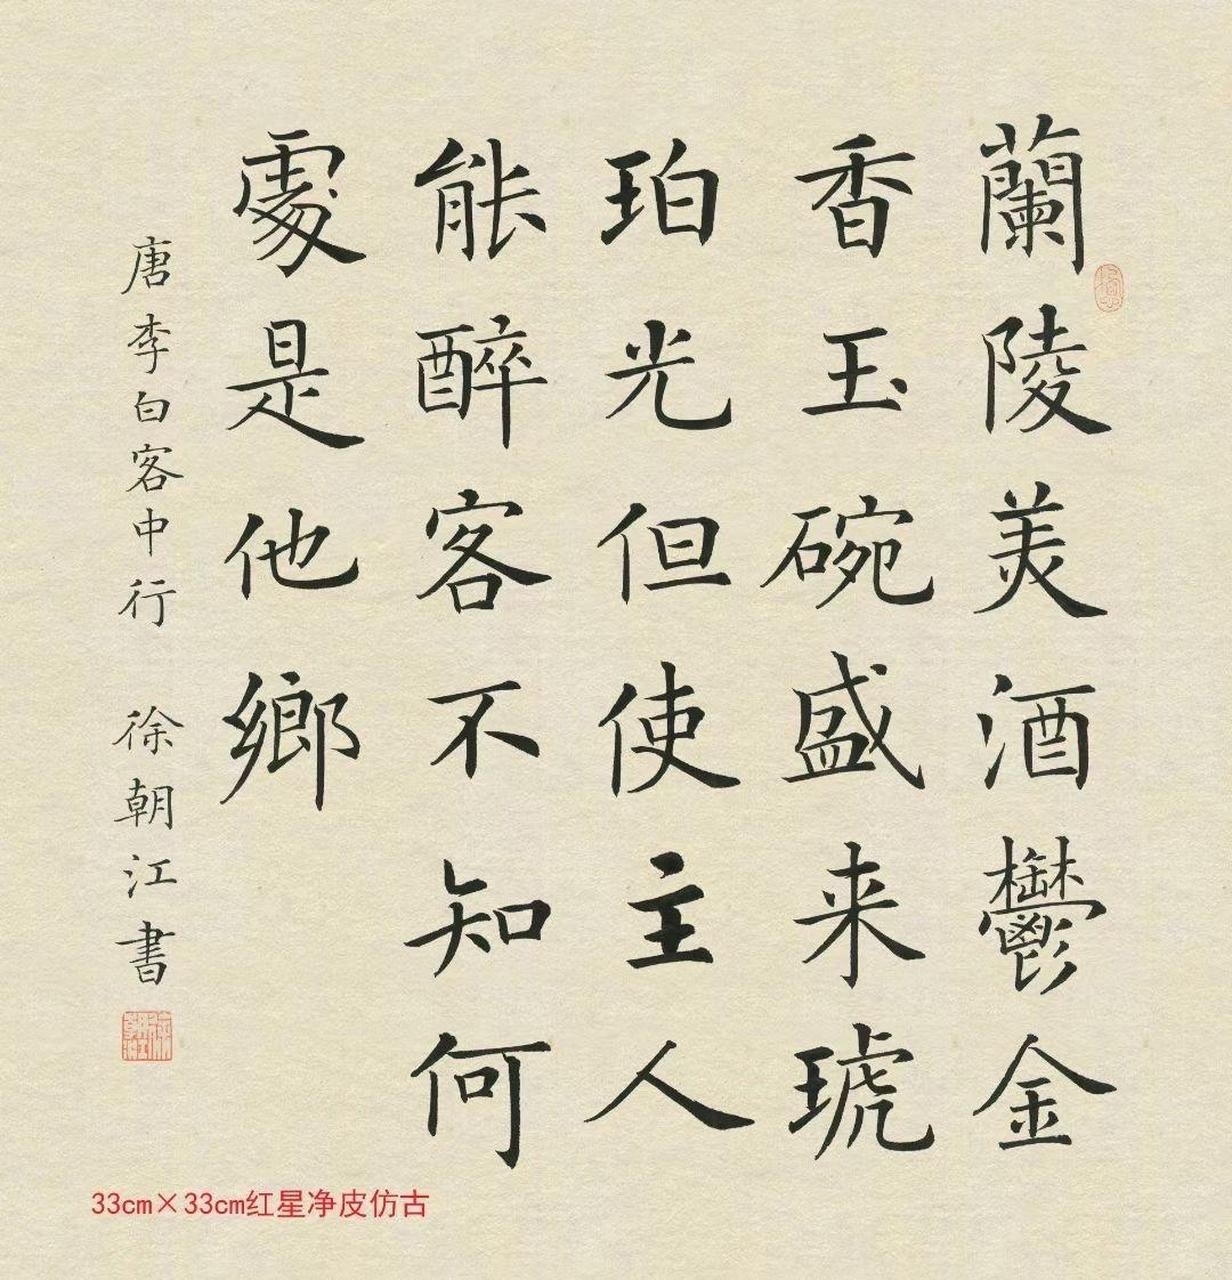 蘭陵美酒鬱金
香玉碗盛来琥
珀光但使主人
能醉客不知何
處是他鄉
唐李白客中行 徐朝江書
33cm×33cm红星净皮仿古